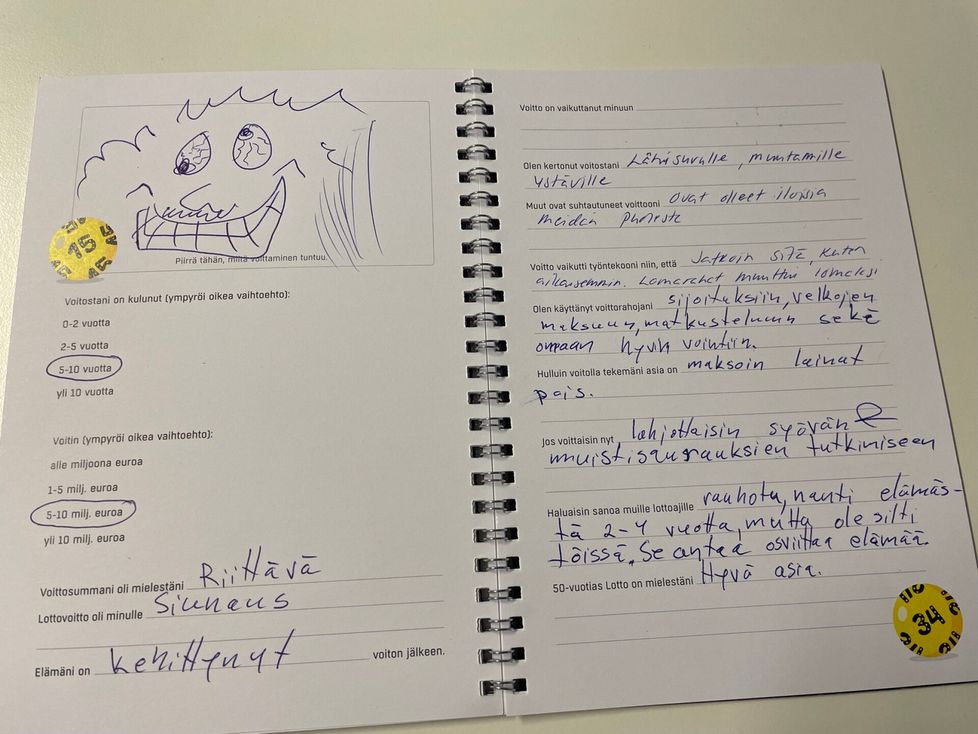 15
Piirrä tähän, miltä voittaminen tuntuu.
Voitostani on kulunut (ympyröi oikea vaihtoehto):
0-2 vuotta
2-5 vuotta
5-10 vuotta
yli 10 vuotta
Voitin (ympyröi oikea vaihtoehto):
alle miljoona euroa
1-5 milj. euroa
5-10 milj. euroa
yli 10 milj. euroa
Voittosummani oli mielestäni Riittävä
Lottovoitto oli minulle Siunaus
Elämäni on kehittynyt voiton jälkeen.
Voitto on vaikuttanut minuun
Olen kertonut voitostani Lähisuvulle, muutamille
ystäville
Muut ovat suhtautuneet voittooni Ovat olleet iloisia
meidän puolesta
Voitto vaikutti työntekooni niin, että Jatkoin sitä, kuten
aikaisemmin. Lomarahat muuttui lomaksi
Olen käyttänyt voittorahojani sijoituksiin, velkojen
maksuun, matkusteluun sekä
omaan hyvinvointiin.
Hulluin voitolla tekemäni asia on maksoin lainat
pois.
Jos voittaisin nyt, lahjottaisin syövän
muistisaurauksien tutkimiseen
Haluaisin sanoa muille lottoajille rauhotu, nauti elämäs-
tä 2-4 vuotta, mutta ole silti
töissä. Se antaa osviittaa elämää.
50-vuotias Lotto on mielestäni Hyvä asia.
34